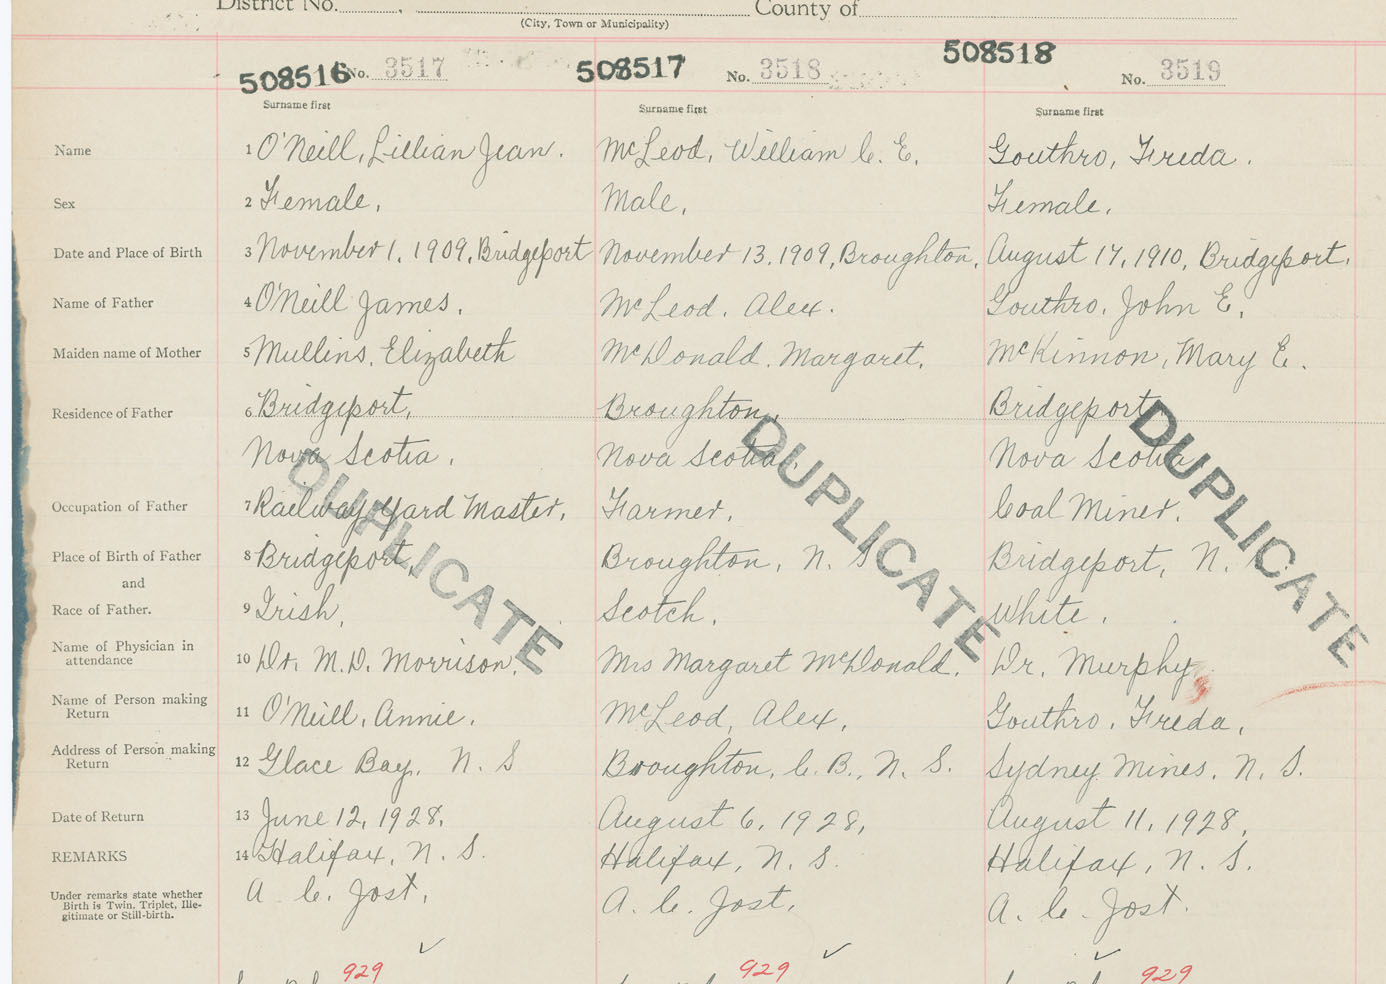 District No. County of
(City, Town or Municipality)
508516 No. 3517 508517 No. 3518 508518 No. 3519
Surname first Surname first Surname first
Name 1 O'Neill, Lillian Jean. McLeod, William C. E. Gouthro, Freda.
Sex 2 Female. Male. Female.
Date and Place of Birth 3 November 1, 1909, Bridgeport November 13, 1909, Broughton, August 17, 1910, Bridgeport.
Name of Father 4 O'Neill James. McLeod, Alex. Gouthro, John E.
Maiden name of Mother 5 Mullins, Elizabeth McDonald, Margaret. McKinnon, Mary E.
Residence of Father 6 Bridgeport, Broughton, Bridgeport
Nova Scotia. Nova Scotia. Nova Scotia
DUPLICATE DUPLICATE DUPLICATE
Occupation of Father 7 Railway Yard Master. Farmer. Coal Miner.
Place of Birth of Father 8 Bridgeport Broughton, N. S Bridgeport, N.
and
Race of Father. 9 Irish. Scotch. White.
Name of Physician in
attendance 10 Dr. M.D. Morrison. Mrs Margaret McDonald. Dr. Murphy
Name of Person making
Return 11 O'Neill, Annie. McLeod, Alex. Gouthro, Freda.
Address of Person making
Return 12 Glace Bay, N. S Broughton, C. B., N. S. Sydney Mines, N. S.
Date of Return 13 June 12, 1928. August 6, 1928. August 11, 1928.
REMARKS 14 Halifax, N. S. Halifax, N. S. Halifax, N. S.
Under remarks state whether
Birth is Twin, Triplet, Ille-
gitimate or Still-birth.
A. C. Jost. A. C. Jost. A. C. Jost.
929 929 929